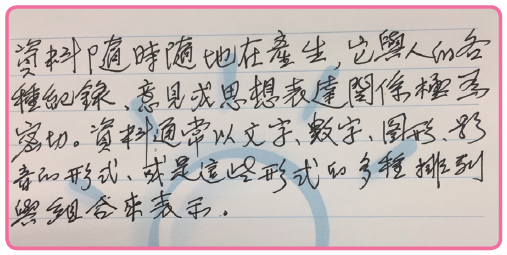 資料隨時隨地在產生,它與人的各
種紀錄、意見或思想表達關係極為
密切。資料通常以文字、數字、圖形、影
音的形式、或是這些形式的多種排列
與組合來表示。